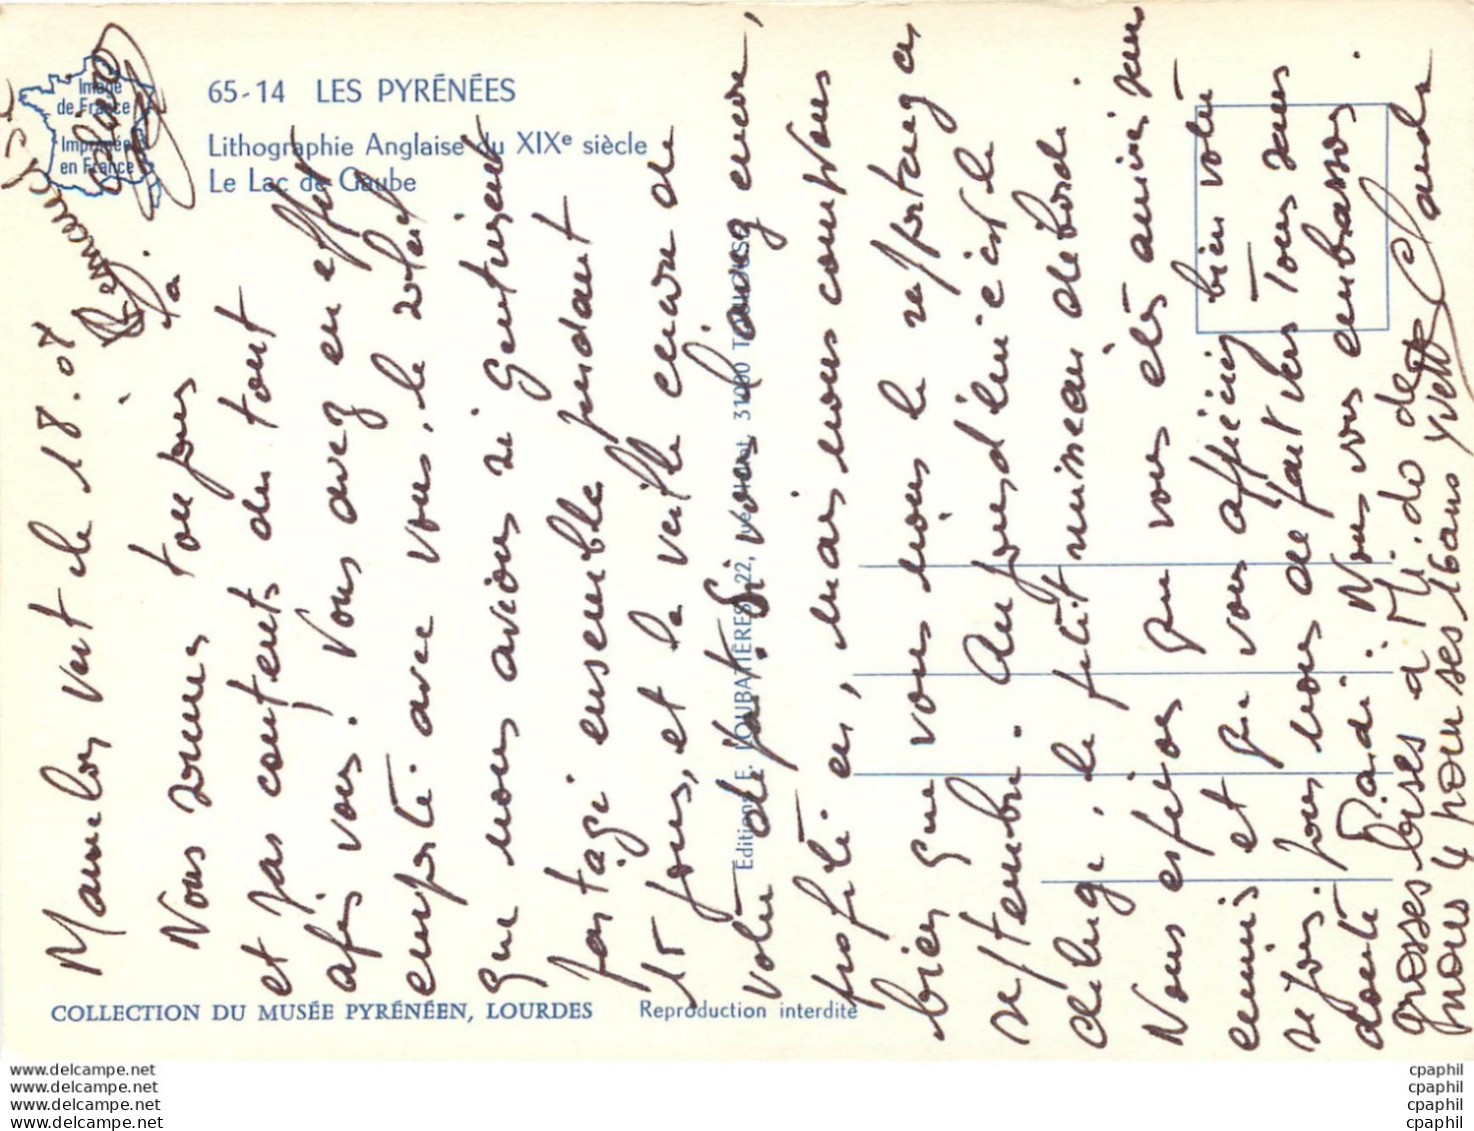 65-14 LES PYRÉNÉES
Lithographie Anglaise du XIXe siècle
Le Lac de Gaube
Image
de France
Imprimée
en France
Editions E. LOUBATIÈRES 22, 31000 TOULOUSE
COLLECTION DU MUSÉE PYRÉNÉEN, LOURDES
Reproduction interdite
vert le 18.08
Nous sommes toujours là
et pas contents du tout
après vous! Vous avez en effet
emporté avec vous, le soleil
que nous avions si gentiment
partagé ensemble pendant
15 jours, et la veille encore de
votre départ. Si vous l'avez encore,
profitez en, mais nous comptons
bien que vous nous le rapportiez en
septembre. Aujourd'hui c'est le
déluge, le petit ruisseau déborde.
Nous espérons que vous êtes arrivés sans
ennuis et que vous appréciez bien votre
séjour. pour nous départ vers Tours sans
doute Mardi. Nous vous embrassons.
Claude
grosses bises à Mi.do de
nous 4 pour ses 16 ans Yvette
www.delcampe.net
www.delcampe.net
www.delcampe.net
www.delcampe.net
cpaphil
cpaphil
cpaphil
cpaphil